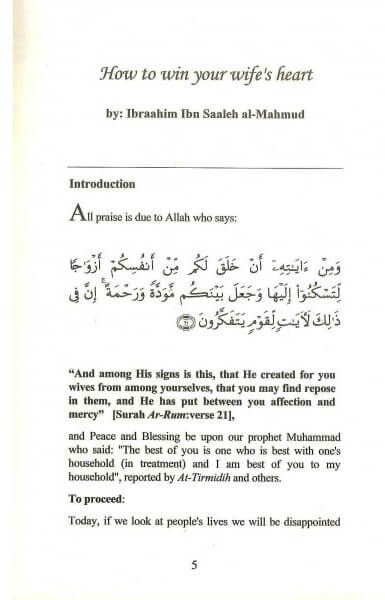 How to win your wife's heart
by: Ibraahim Ibn Saaleh al-Mahmud
Introduction
All praise is due to Allah who says:
وَمِنْ ءَايَٰتِهِۦٓ أَنْ خَلَقَ لَكُم مِّنْ أَنفُسِكُمْ أَزْوَٰجًا
لِّتَسْكُنُوٓا۟ إِلَيْهَا وَجَعَلَ بَيْنَكُم مَّوَدَّةً وَرَحْمَةً ۚ إِنَّ فِى
ذَٰلِكَ لَءَايَٰتٍ لِّقَوْمٍ يَتَفَكَّرُونَ ٢١
"And among His signs is this, that He created for you
wives from among yourselves, that you may find repose
in them, and He has put between you affection and
mercy" [Surah Ar-Rum:verse 21],
and Peace and Blessing be upon our prophet Muhammad
who said: "The best of you is one who is best with one's
household (in treatment) and I am best of you to my
household", reported by At-Tirmidih and others.
To proceed:
Today, if we look at people's lives we will be disappointed
5